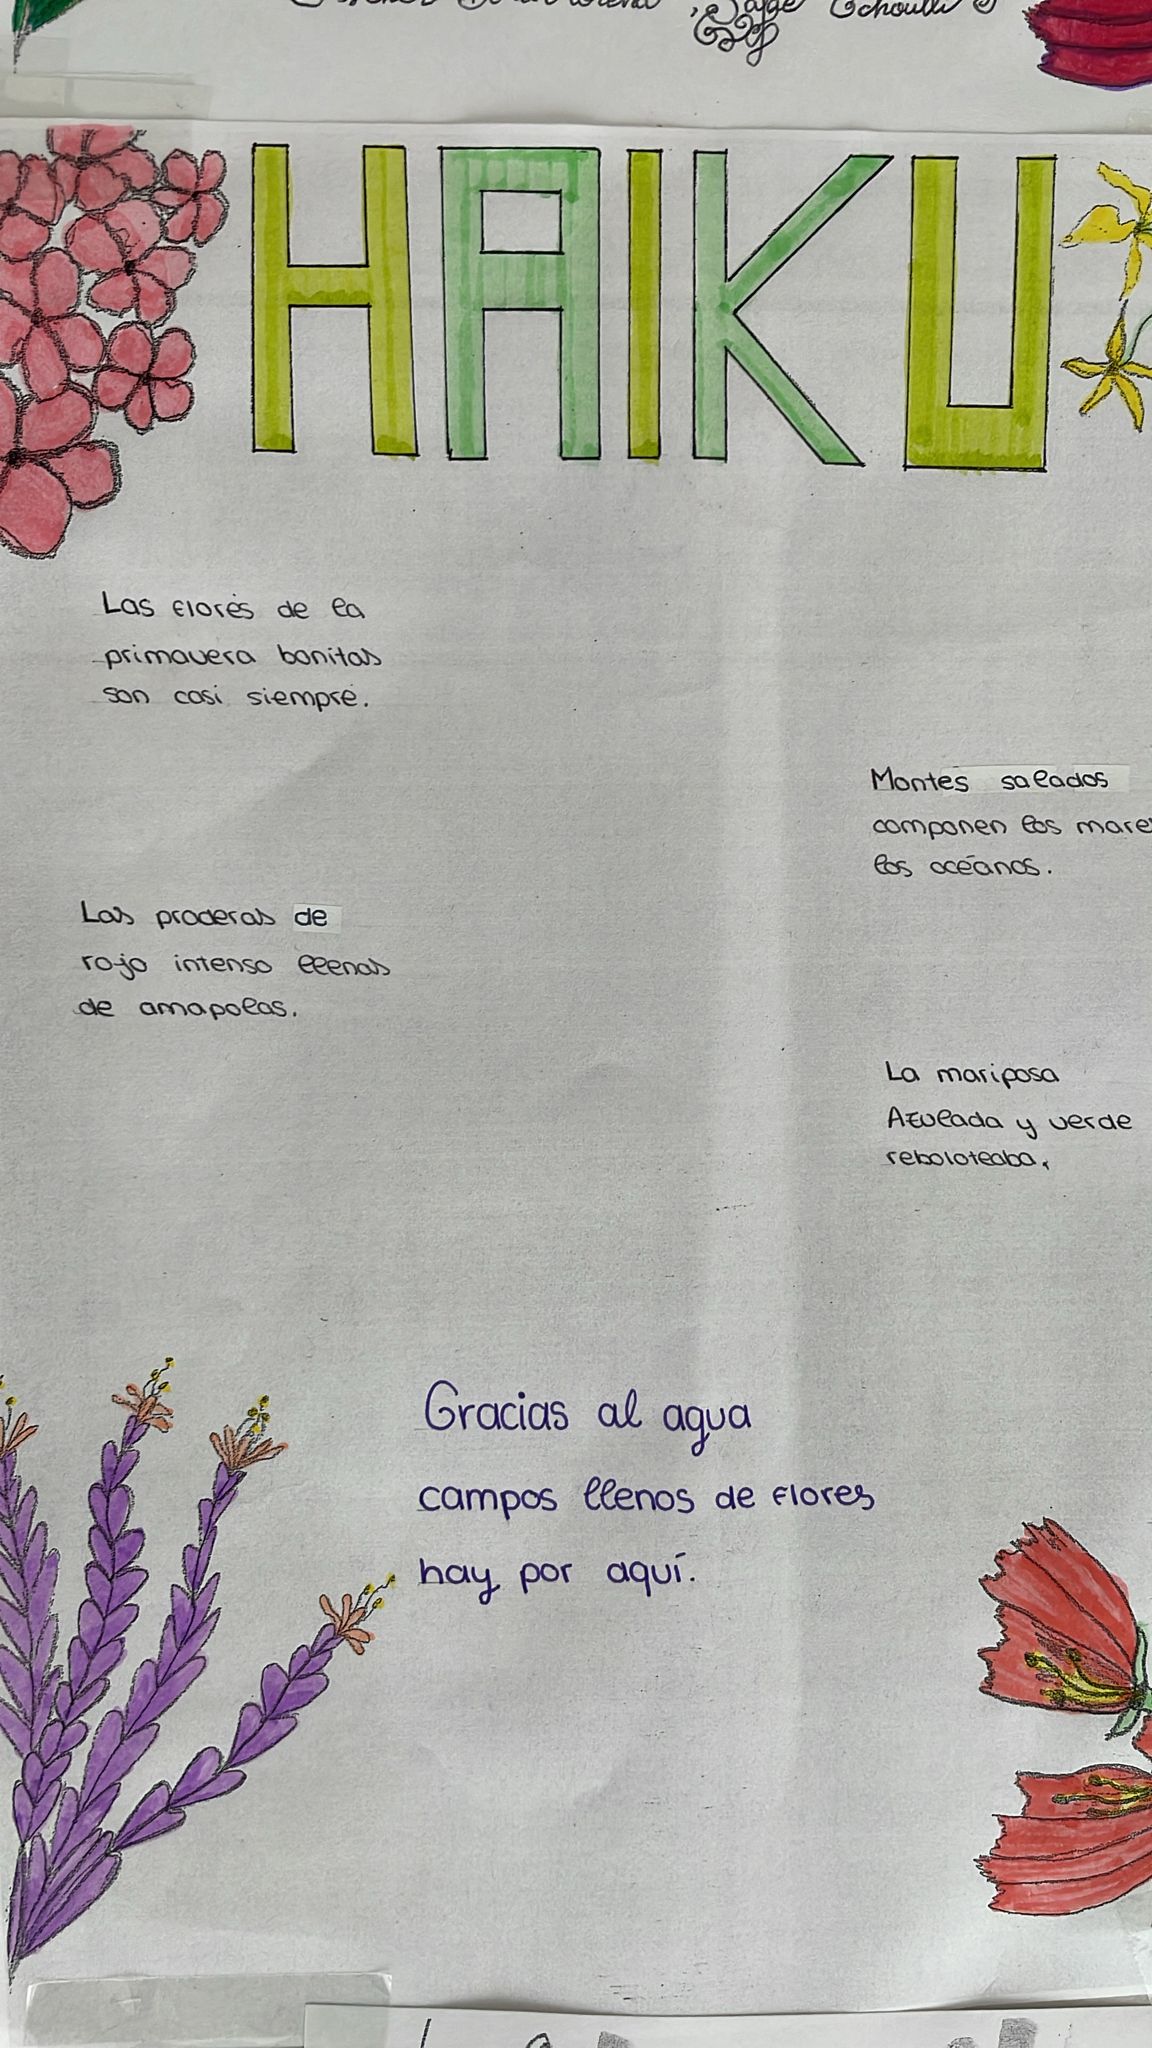 HAIKU
Las flores de la
primavera bonitas
son casi siempre.
Montes salados
componen los mare
los océanos.
Las praderas de
rojo intenso llenas
de amapolas.
La mariposa
Azulada y verde
reboloteaba.
Gracias al agua
campos llenos de flores
hay por aquí.